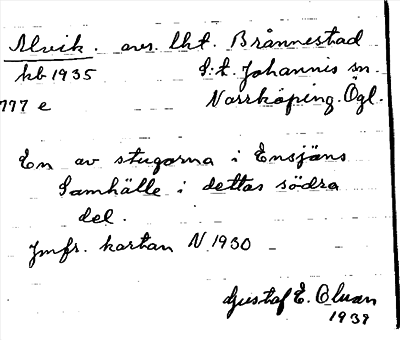 Alvik. avs. lht. Brånnestad
kb 1935 S:t. Johannis sn.
777 e Norrköping. Ögl.
En av stugorna i Ensjöns
Samhälle i dettas södra
del.
Jmfr. kartan N 1930
Gustaf E. Olsson
1939